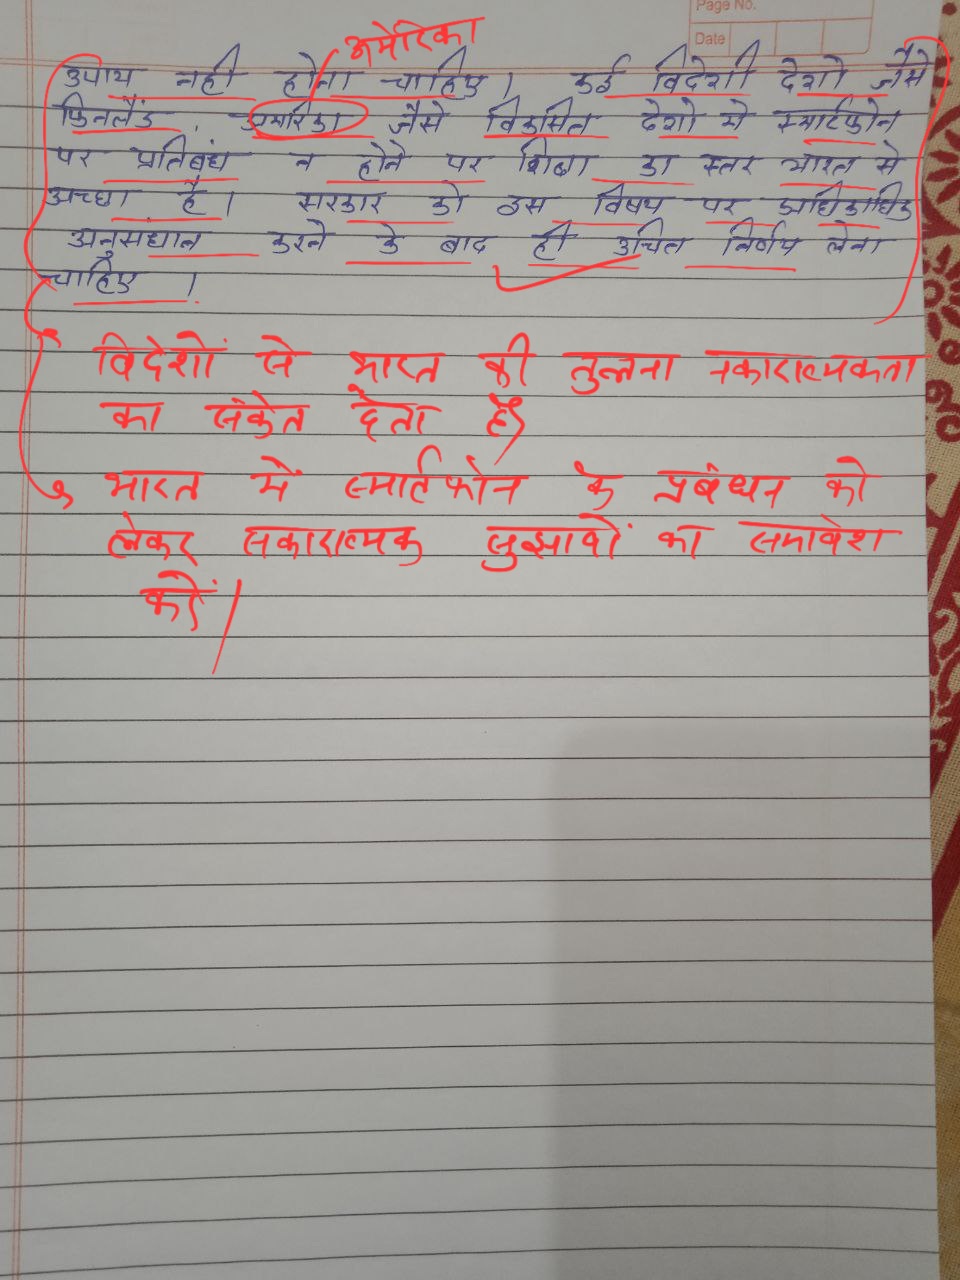 Page No.
Date
अमेरिका
उपाय नही होना चाहिए। कई विदेशी देशो जैसे
फिनलैंड, अमरिका जैसे विकसित देशो मे स्मार्टफोन
पर प्रतिबंध न होने पर शिक्षा का स्तर भारत से
अच्छा है। सरकार को इस विषय पर अधिकाधिक
अनुसंधान करने के बाद ही उचित निर्णय लेना
चाहिए।
विदेशों से भारत की तुलना नकारात्मकता
का संकेत देता है।
भारत में स्मार्टफोन के प्रबंधन को
लेकर सकारात्मक सुझावों का समावेश
करें।